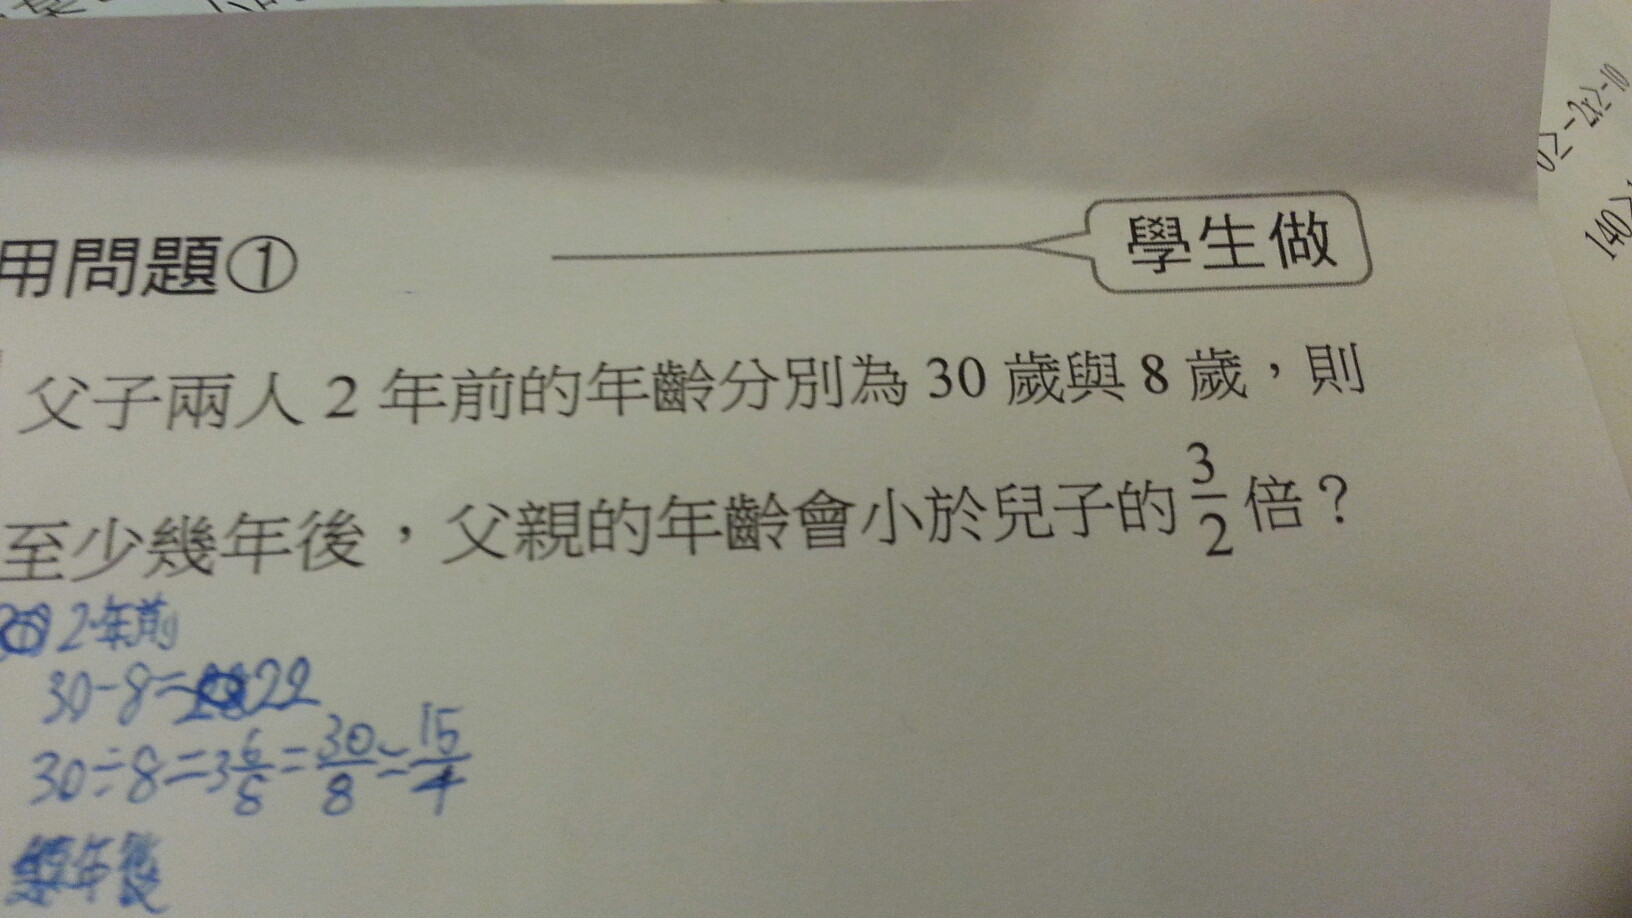 用問題①
學生做
父子兩人 2 年前的年齡分別為 30 歲與 8 歲，則
至少幾年後，父親的年齡會小於兒子的 3/2 倍？
2年前
30-8=22
30÷8=3 6/8=30/8=15/4
年後
≥-2x≥-10
140>